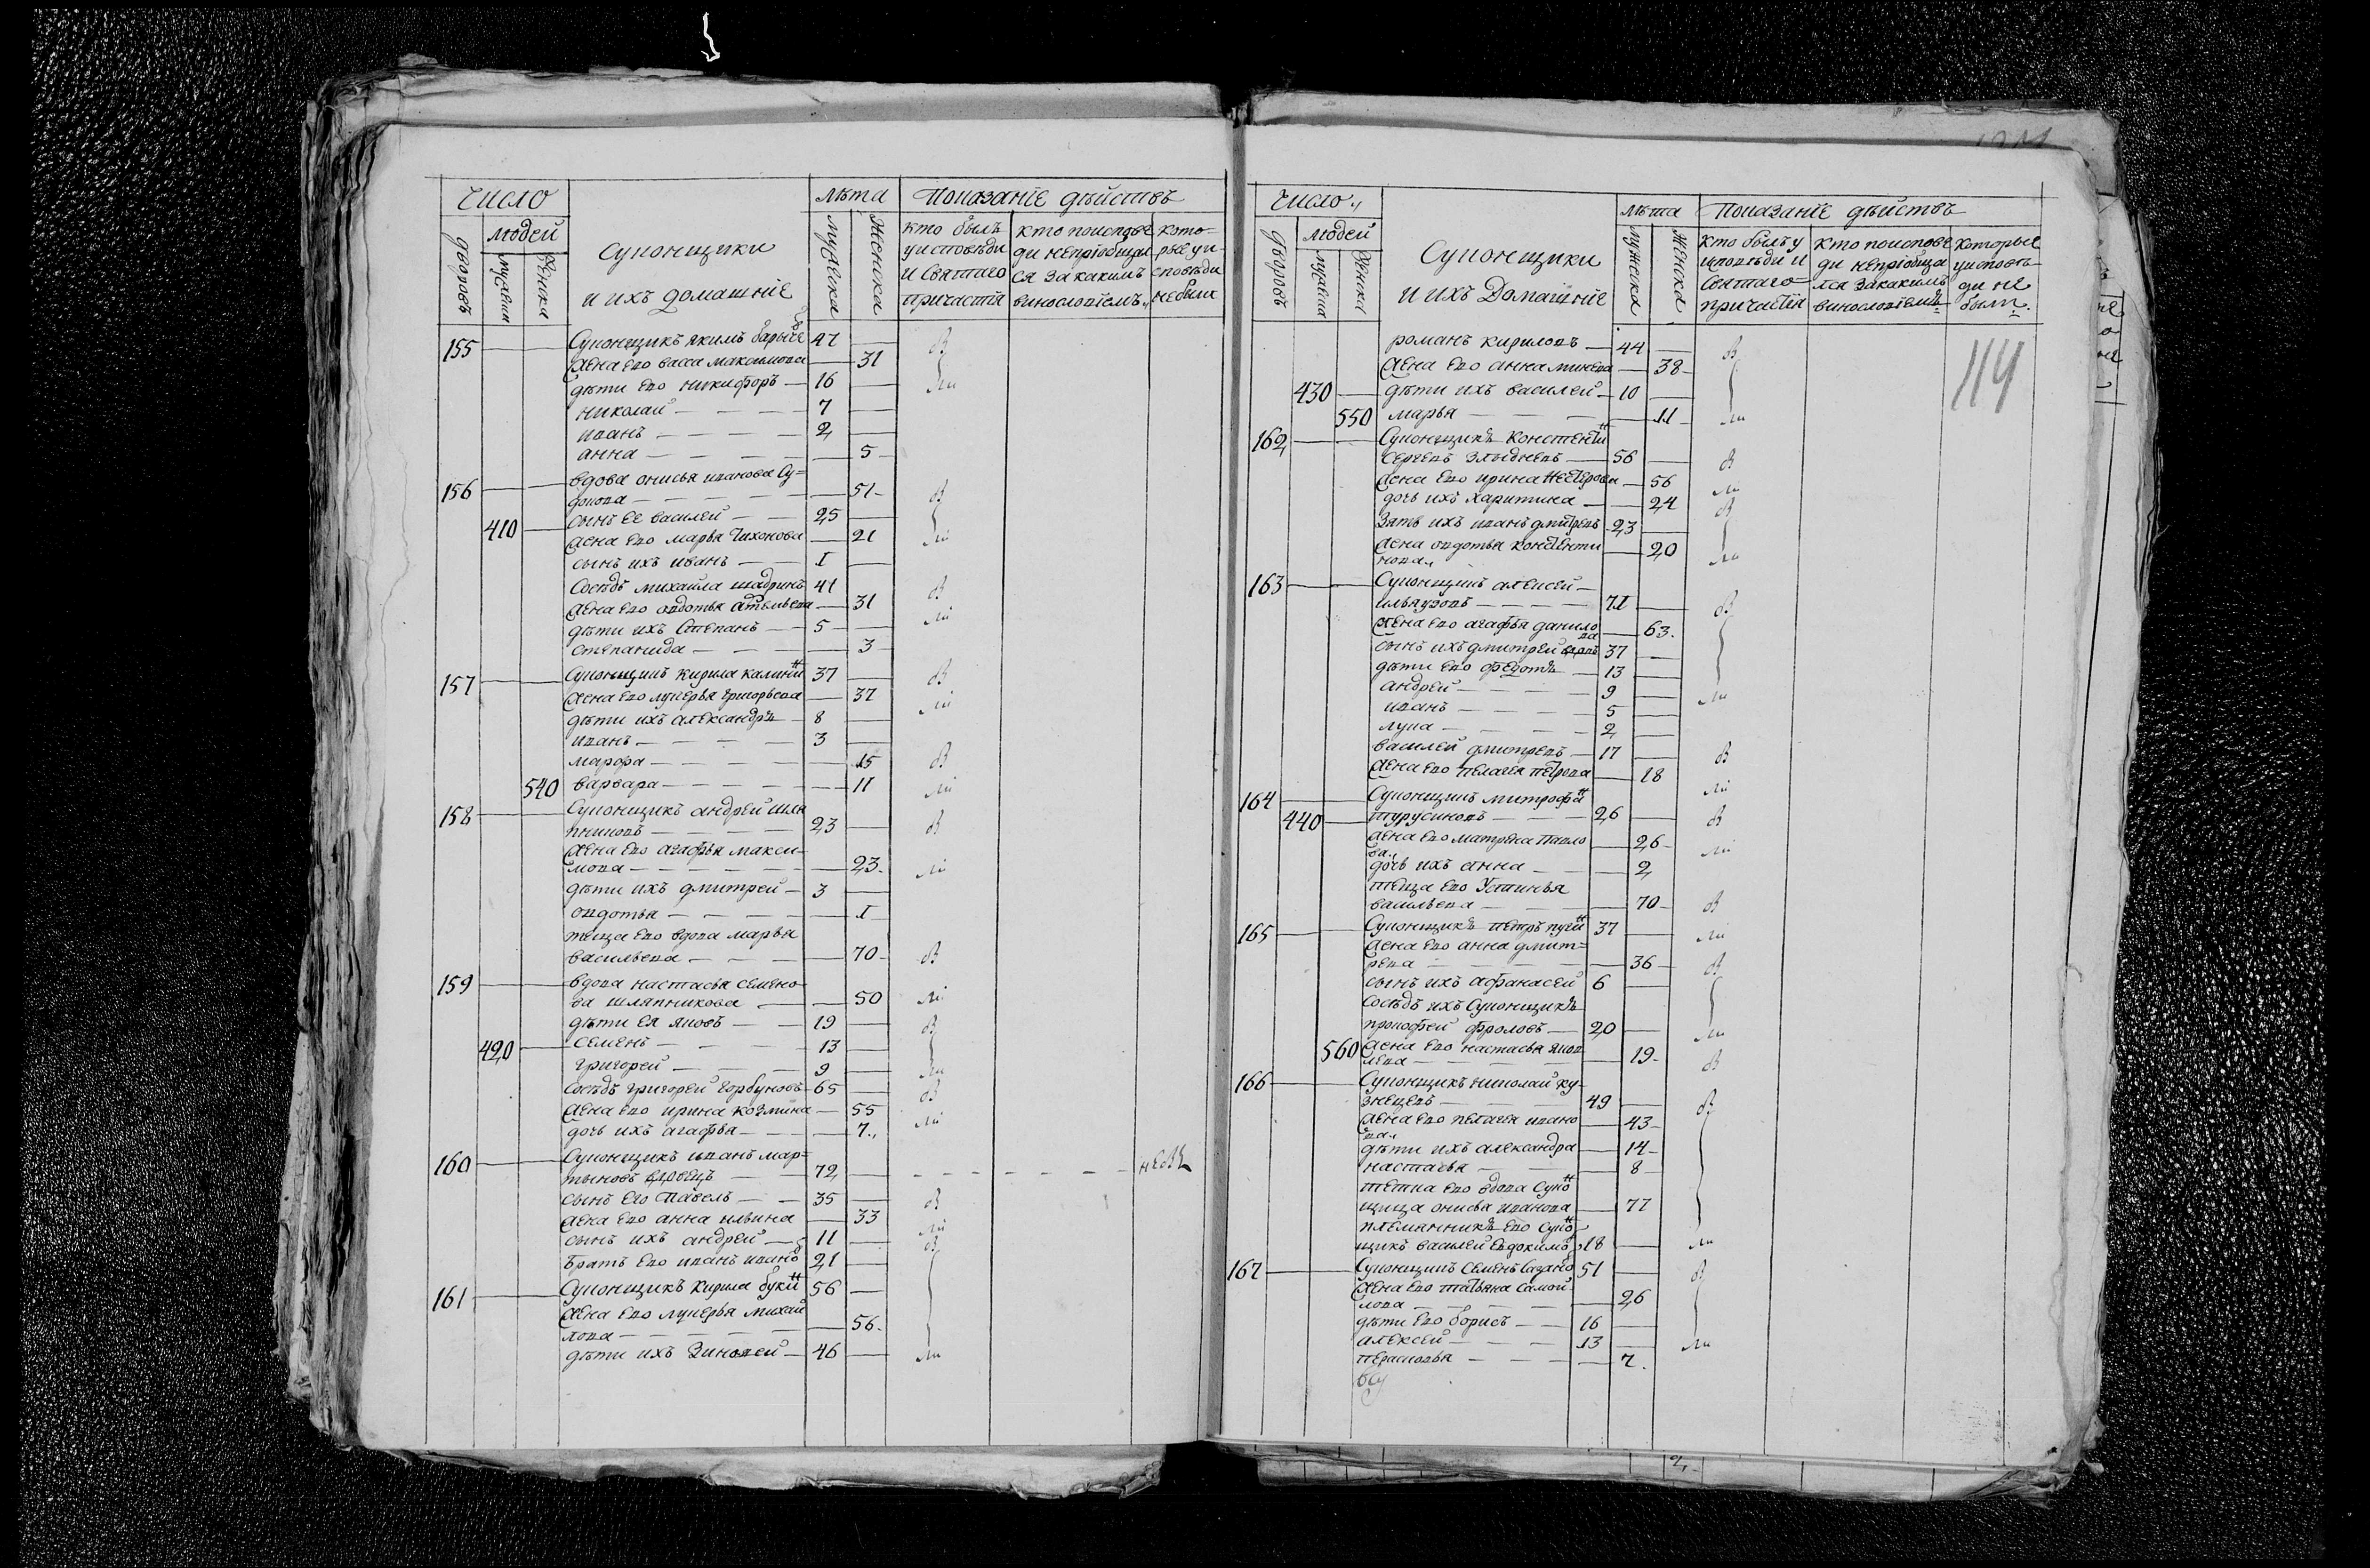 число
людей
дворовъ
мужеска
женска
Суконщики
и ихъ домашнїе
лѣта
мужеска
женска
Показанїе дѣйствъ
кто былъ
у исповѣди
и святаго
причастїя
кто по исповѣ
ди не прїобщил
ся за какимъ
винословїемъ
кото-
рые у и-
сповѣди
не были
155 Суконщикъ якимъ барыше 47
жена ево васса максимова 31
дѣти ево никифоръ 16
николай 7
иванъ 2
анна 5
156 вдова онисья иванова Су-
51
410 сынъ ее василей 25
жена ево марья тихонова 21
сынъ ихъ иванъ 1
Сосѣдъ михайла шадринъ 41
жена ево овдотья 31
дѣти ихъ Степанъ 5
степанида 3
157 Суконщикъ кирила калинин 37
жена ево лукерья григорьева 37
дѣти ихъ александръ 8
иванъ 3
марфа 15
540 варвара 11
158 Суконщикъ андрей шля
пниковъ 23
жена ево агафья макси-
мова 23
дѣти ихъ дмитрей 3
овдотья 1
теща ево вдова марья
васильева 70
159 вдова настасья семено-
ва шляпникова 50
дѣти ея яковъ 19
420 семенъ 13
григорей 9
сосѣдъ григорей горбуновъ 65
жена ево ирина козмина 55
дочь ихъ агафья 7
160 Суконщикъ иванъ мар-
тыновъ вдовецъ 72
сынъ его павелъ 35
жена ево анна ильина 33
сынъ ихъ андрей 11
братъ ево иванъ ивано 21
161 Суконщикъ кирила букин 56
жена ево лукерья михай
лова 56
дѣти ихъ зиновей 46
число
людей
дворовъ
мужеска
женска
Суконщики
и ихъ Домашнїе
лѣта
мужеска
женска
Показанїе дѣйствъ
кто былъ у
исповѣди и
святаго
причастїя
кто по исповѣ
ди не прїобща
лся за какимъ
винословїемъ
которые
у исповѣ-
ди не
были
114
романъ кириловъ 44
жена ево анна минева 38
430 дѣти ихъ василей 10
550 марья 11
162 Суконщикъ констенти
сергевъ злыдневъ 56
жена ево ирина нестерова 56
дочь ихъ харитина 24
зять ихъ иванъ дмитревъ 23
жена овдотья констенти 20
нова
163 Суконщикъ алексей
71
жена ево агафья данило
ва 63
сынъ ихъ дмитрей вдовъ 37
дѣти ево федотъ 13
андрей 9
иванъ 5
лука 2
василей дмитревъ 17
жена ево пелагея петрова 18
164 Суконщикъ митрофан
440 турусиновъ 26
жена ево матрена павло 26
ва
дочь ихъ анна 2
теща ево устинья
васильева 70
165 Суконщикъ петръ 37
жена ево анна дмит-
рева 36
сынъ ихъ афанасей 6
сосѣдъ ихъ Суконщикъ
прокофей фроловъ 20
560 жена ево настасья яков
лева 19
166 Суконщикъ николай ку-
знецевъ 49
жена ево пелагея ивано 43
ва
дѣти ихъ александра 14
настасья 8
тетка ево вдова сукон
щица онисья иванова 77
племянникъ ево сукон
щикъ василей евдокимо 18
167 Суконщикъ семенъ сазано 51
жена ево татьяна самой-
лова 26
дѣти ево борисъ 16
алексей 13
парасковья 7